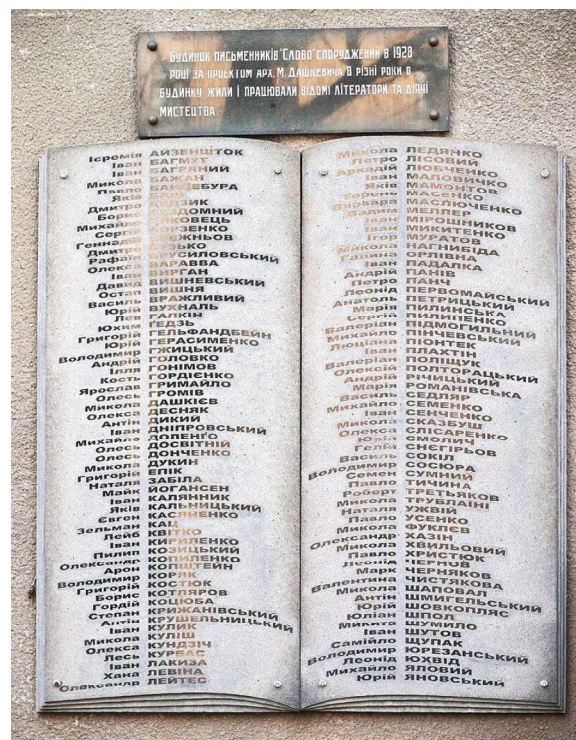 БУДИНОК ПИСЬМЕННИКІВ "СЛОВО" СПОРУДЖЕНИЙ В 1928
РОЦІ ЗА ПРОЕКТОМ АРХ. М. ДАШКЕВИЧА. В РІЗНІ РОКИ В
БУДИНКУ ЖИЛИ І ПРАЦЮВАЛИ ВІДОМІ ЛІТЕРАТОРИ ТА ДІЯЧІ
МИСТЕЦТВА.
Ієремія АЙЗЕНШТОК
Іван БАГМУТ
Іван БАГРЯНИЙ
Микола БАЖАН
Павло БАНДЕБУРА
Яків
Дмитро
Борис
Михайло
Сергій БОРЗЕНКО
Геннадій
Дмитро
Рафаїл БРУСИЛОВСЬКИЙ
Олекса ВАРАВВА
Іван ВИРГАН
Давид ВИШНЕВСЬКИЙ
Остап ВИШНЯ
Василь ВРАЖЛИВИЙ
Юрій ВУХНАЛЬ
Лев ГАЛКІН
Юхим ГЕДЗЬ
Григорій ГЕЛЬФАНДБЕЙН
Юрій ГЕРАСИМЕНКО
Володимир ГЖИЦЬКИЙ
Андрій ГОЛОВКО
Ілля ГОНІМОВ
Кость ГОРДІЄНКО
Ярослав ГРИМАЙЛО
Олесь ГРОМІВ
Микола ДАШКІЄВ
Олекса ДЕСНЯК
Антін ДИКИЙ
Іван ДНІПРОВСЬКИЙ
Михайло ДОЛЕНГО
Олесь ДОСВІТНІЙ
Олесь ДОНЧЕНКО
Микола ДУКИН
Григорій ЕПІК
Наталя ЗАБІЛА
Майк ЙОГАНСЕН
Іван КАЛЯННИК
Яків КАЛЬНИЦЬКИЙ
Євген КАСЯНЕНКО
Зельман КАЦ
Лейб КВІТКО
Іван КИРИЛЕНКО
Пилип КОЗИЦЬКИЙ
Олександр КОПИЛЕНКО
Арон КОПШТЕЙН
Володимир КОРЯК
Григорій КОСТЮК
Борис КОТЛЯРОВ
Гордій КОЦЮБА
Степан КРИЖАНІВСЬКИЙ
Антін КРУШЕЛЬНИЦЬКИЙ
Іван КУЛИК
Микола КУЛІШ
Олекса КУНДЗІЧ
Лесь КУРБАС
Іван ЛАКИЗА
Хана ЛЕВІНА
Олександр ЛЕЙТЕС
Микола ЛЕДЯНКО
Петро ЛІСОВИЙ
Аркадій ЛЮБЧЕНКО
Іван МАЛОВІЧКО
Яків МАМОНТОВ
Терень МАСЕНКО
Варвара МАСЛЮЧЕНКО
Вадим МЕЛЛЕР
Іван МІРОШНИКОВ
Іван МИКИТЕНКО
Ігор МУРАТОВ
Микола НАГНИБІДА
Галина ОРЛІВНА
Іван ПАДАЛКА
Андрій ПАНІВ
Петро ПАНЧ
Леонід ПЕРВОМАЙСЬКИЙ
Анатоль ПЕТРИЦЬКИЙ
Марія ПИЛИНСЬКА
Сергій ПИЛИПЕНКО
Валеріан ПІДМОГИЛЬНИЙ
Михайло ПІНЧЕВСЬКИЙ
Люціана ПІОНТЕК
Іван ПЛАХТІН
Валеріан ПОЛІЩУК
Олексій ПОЛТОРАЦЬКИЙ
Андрій РІЧИЦЬКИЙ
Марія РОМАНІВСЬКА
Василь СЕДЛЯР
Михайло СЕМЕНКО
Іван СЕНЧЕНКО
Микола СКАЗБУШ
Олекса СЛІСАРЕНКО
Юрій СМОЛИЧ
Гелій СНЄГІРЬОВ
Василь СОКІЛ
Володимир СОСЮРА
Семен СУМНИЙ
Павло ТИЧИНА
Роберт ТРЕТЬЯКОВ
Микола ТРУБЛАЇНІ
Наталя УЖВІЙ
Павло УСЕНКО
Микола ФУКЛЄВ
Олександр ХАЗІН
Микола ХВИЛЬОВИЙ
Павло ХРИСТЮК
Леонід ЧЕРНОВ
Марк ЧЕРНЯКОВ
Валентина ЧИСТЯКОВА
Микола ШАПОВАЛ
Антін ШМИГЕЛЬСЬКИЙ
Юрій ШОВКОПЛЯС
Юліан ШПОЛ
Микита ШУМИЛО
Іван ШУТОВ
Самійло ЩУПАК
Володимир ЮРЕЗАНСЬКИЙ
Леонід ЮХВІД
Михайло ЯЛОВИЙ
Юрій ЯНОВСЬКИЙ